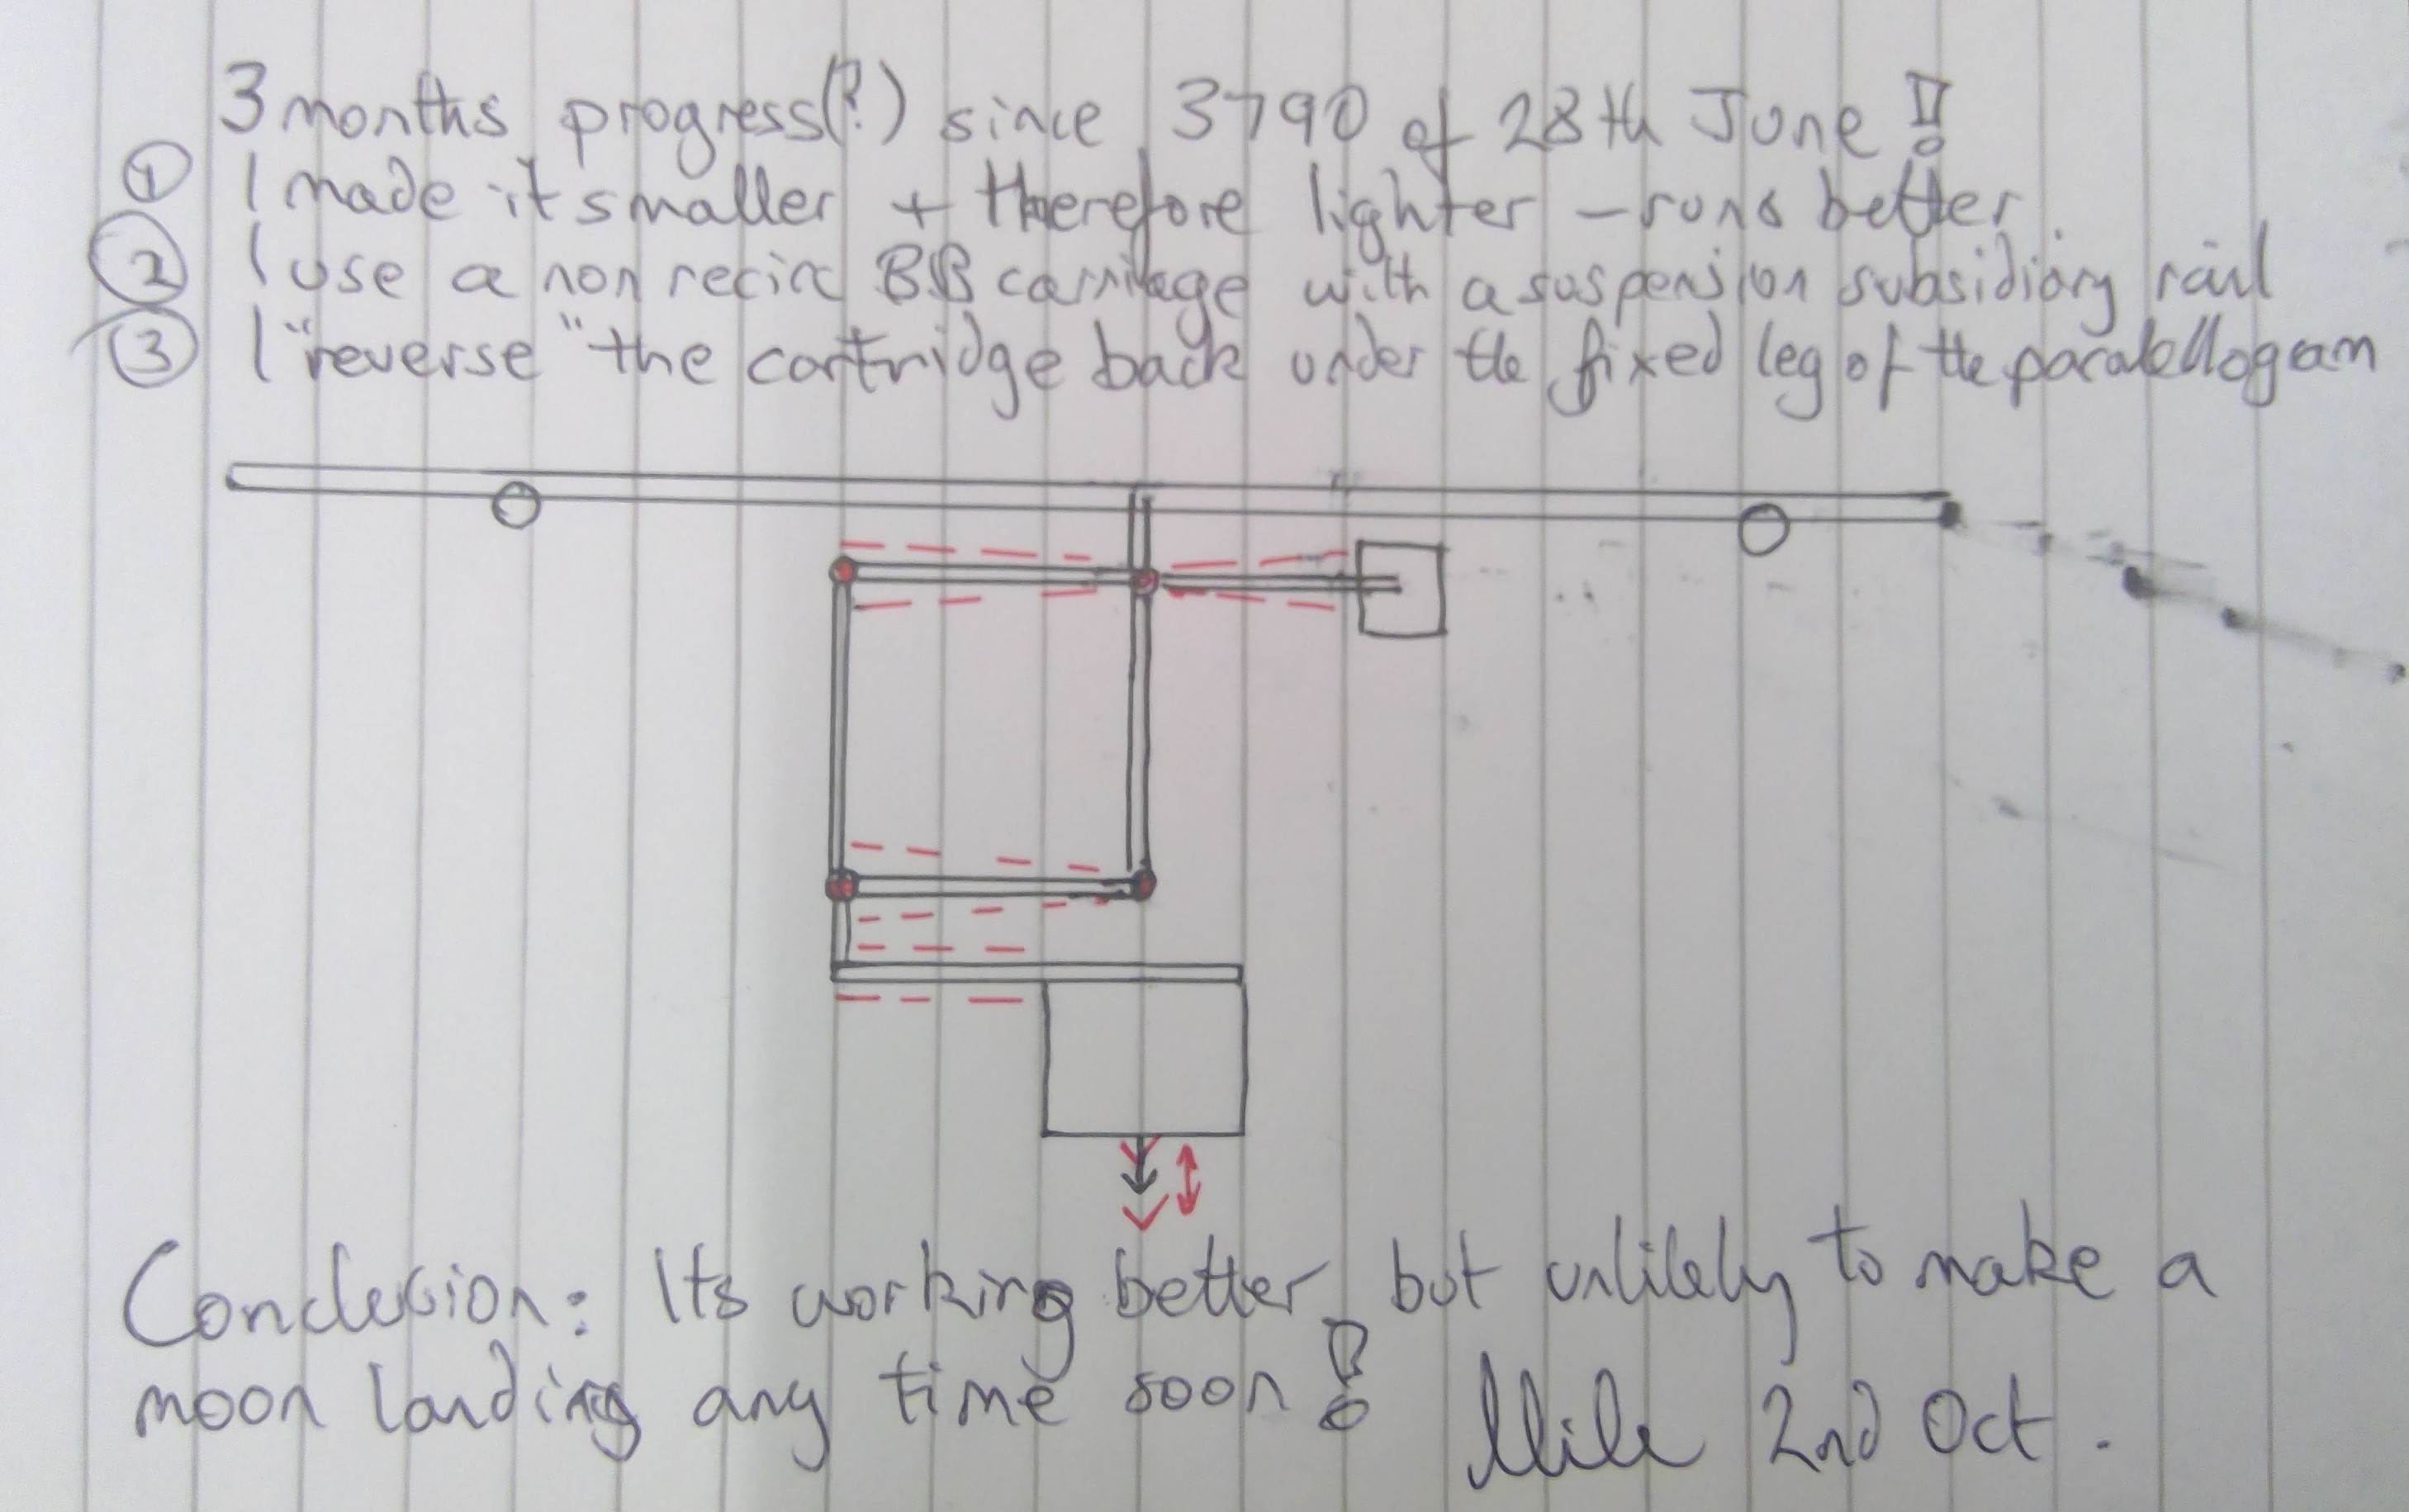 3 months progress(?) since 3790 of 28th June!
① I made it smaller + therefore lighter - runs better.
② I use a non recirc BB carriage with a suspension subsidiary rail
③ I "reverse" the cartridge back under the fixed leg of the paralellogam
Conclusion: Its working better, but unlikely to make a
moon landing any time soon! 2nd Oct.